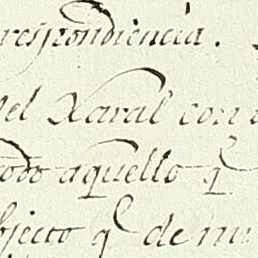 respondiencia.
del Xaral con
todo aquello q
bjecto q de mu